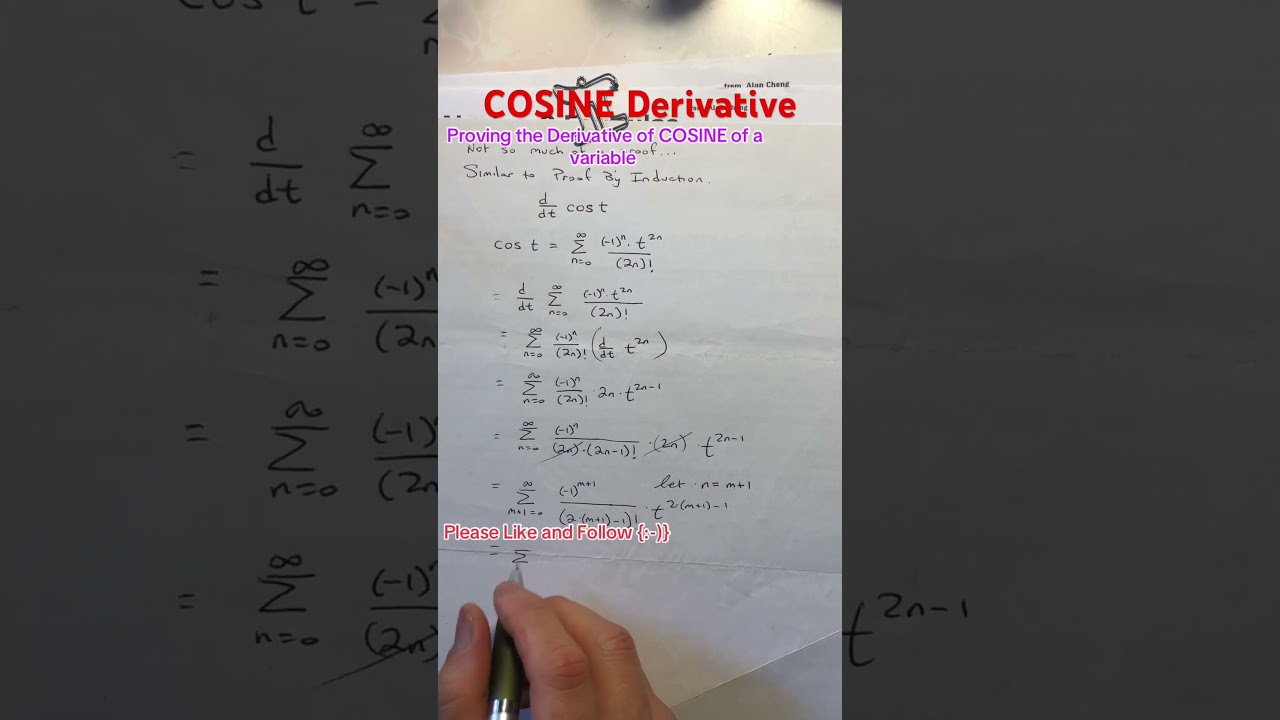 from Alan Cheng
COSINE Derivative
Proving the Derivative of COSINE of a
variable
Not so much of a proof...
Similar to Proof By Induction.
d/dt cos t
cos t = ∞ Σ n=0 (-1)ⁿ · t²ⁿ / (2n)!
= d/dt ∞ Σ n=0 (-1)ⁿ · t²ⁿ / (2n)!
= ∞ Σ n=0 (-1)ⁿ / (2n)! (d/dt t²ⁿ)
= ∞ Σ n=0 (-1)ⁿ / (2n)! · 2n · t²ⁿ⁻¹
= ∞ Σ n=0 (-1)ⁿ / (2n) · (2n-1)! · (2n) · t²ⁿ⁻¹
= ∞ Σ m+1=0 (-1)ᵐ⁺¹ / (2·(m+1)-1)! · t^2·(m+1)-1 let · n = m+1
Please Like and Follow {:-)}
= Σ